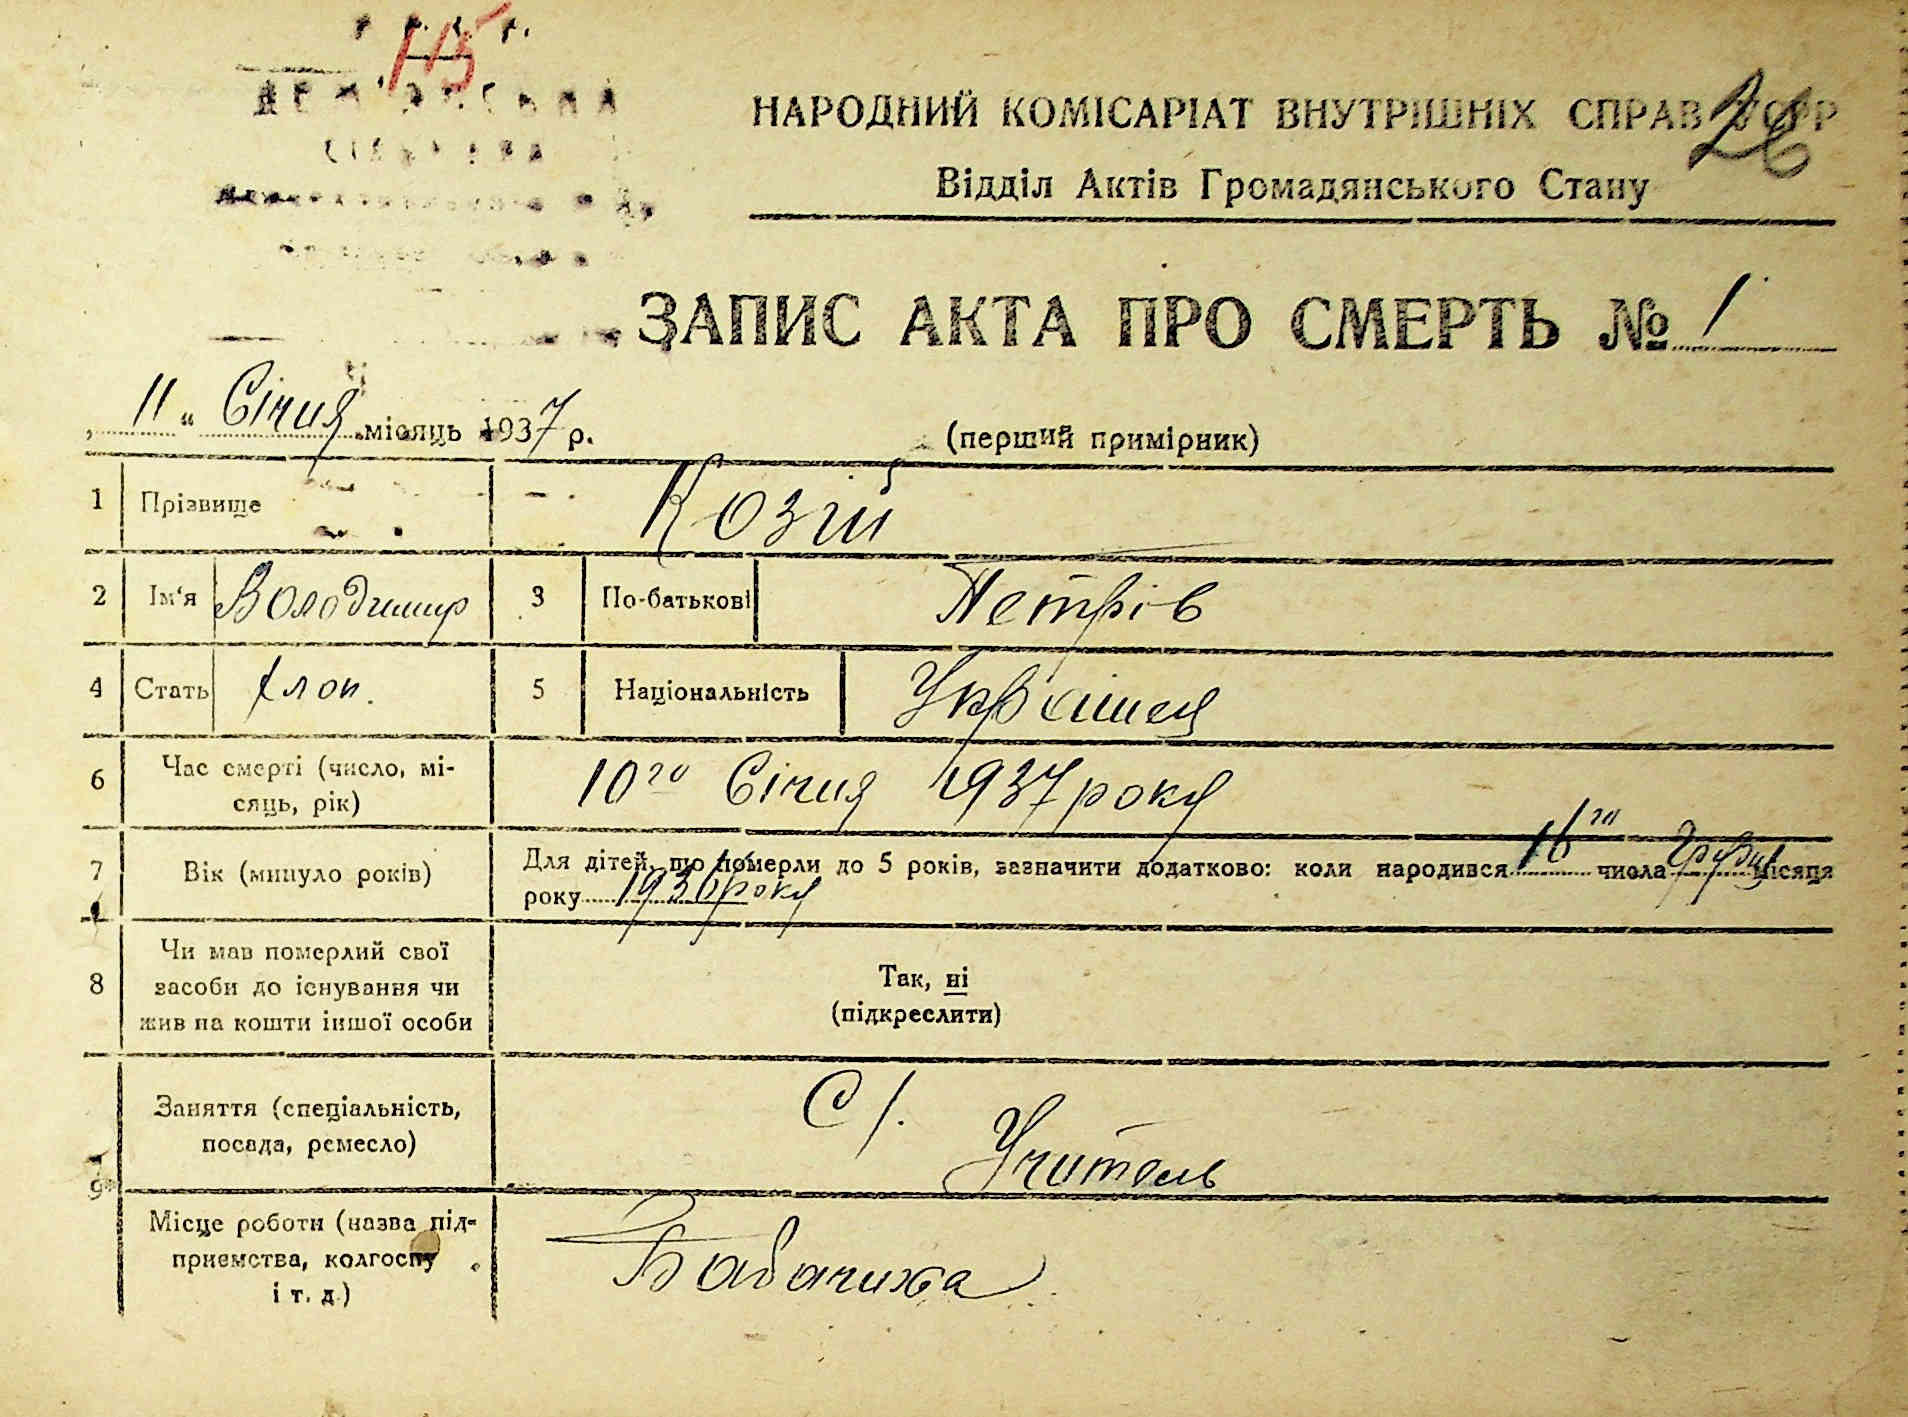 115
НАРОДНИЙ КОМІСАРІАТ ВНУТРІШНІХ СПРАВ УСРР
26
Відділ Актів Громадянського Стану
ЗАПИС АКТА ПРО СМЕРТЬ № 1
„ 11 “ Січня місяць 1937 р. (перший примірник)
1 Прізвище Козій
2 Ім'я Володимир 3 По-батькові Петрів
4 Стать хлоп. 5 Національність
6 Час смерті (число, мі-
сяць, рік) 10го Січня 1937 року
7 Вік (минуло років) Для дітей, що померли до 5 років, зазначити додатково: коли народився 16го числа Грудня місяця
року 1936 року
8 Чи мав померлий свої
засоби до існування чи
жив на кошти іншої особи
Так, ні
(підкреслити)
9 Заняття (спеціальність,
посада, ремесло) С/. Учитель
Місце роботи (назва під-
приємства, колгоспу
і т. д.)